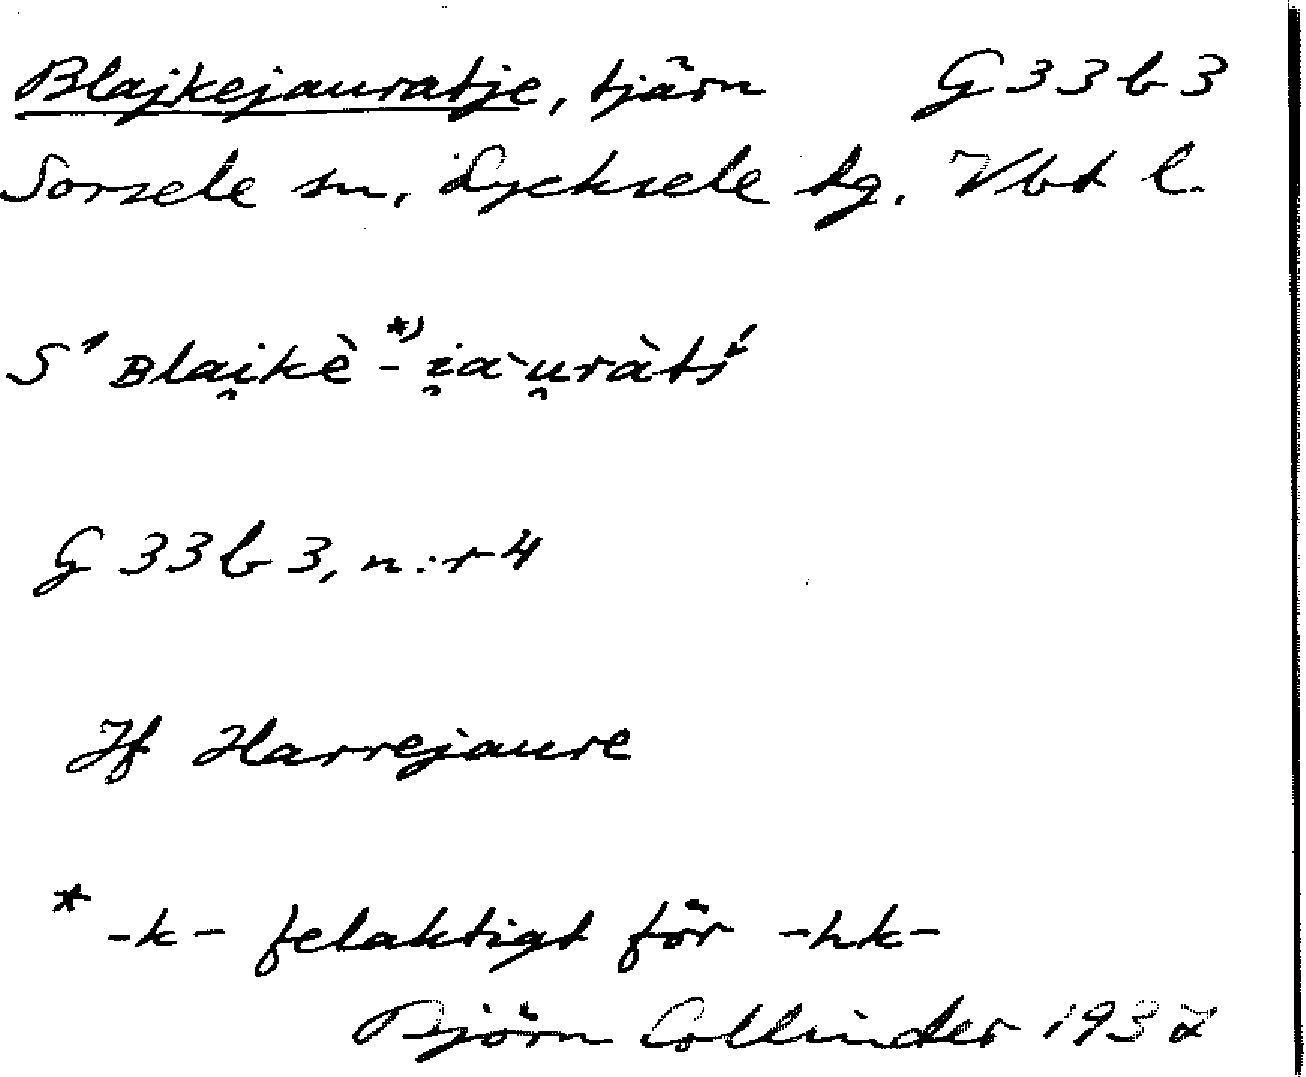 Blajkejauratje, tjärn G 33 b 3
Sorsele sn, Lycksele tg. Vbt l.
S' Blai̯kè*)-i̯àu̯ràtś
G 33 b 3, n:r 4
Jf Harrejaure
* -k- felaktigt för -hk-
Björn Collinder